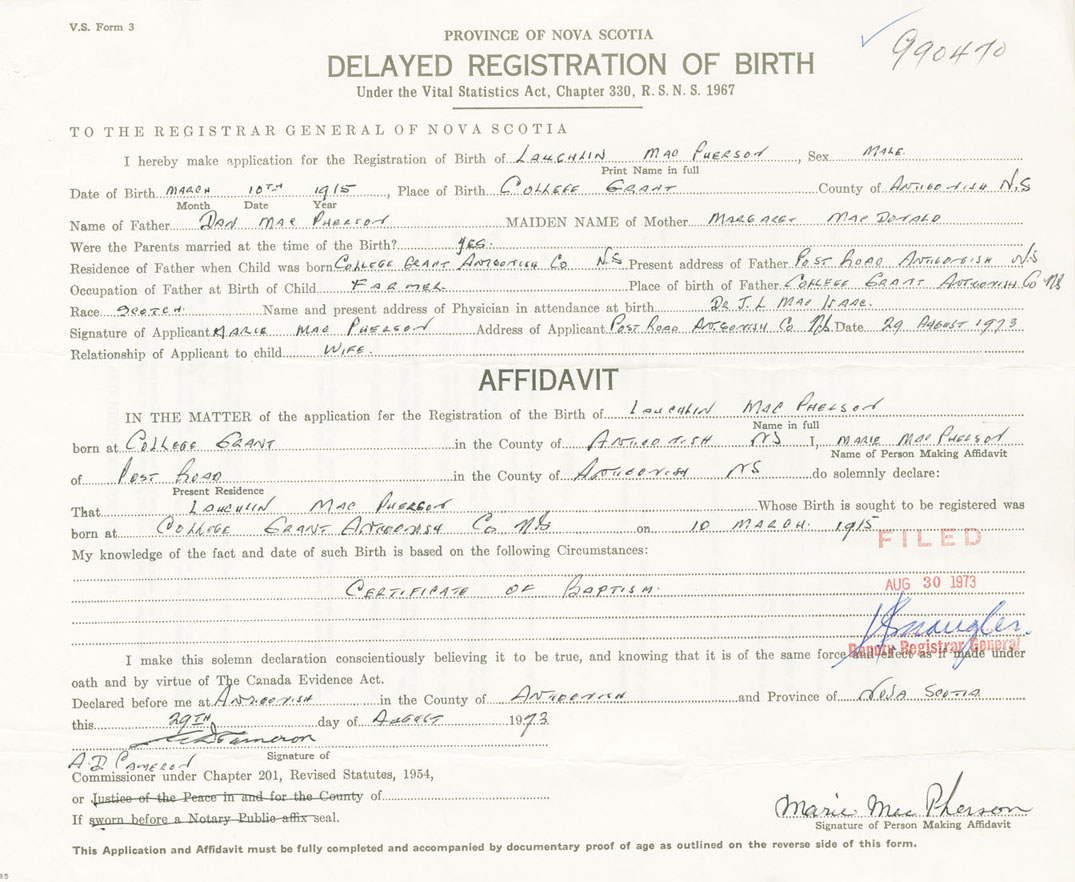 V.S. Form 3
PROVINCE OF NOVA SCOTIA
990470
DELAYED REGISTRATION OF BIRTH
Under the Vital Statistics Act, Chapter 330, R.S.N.S. 1967
TO THE REGISTRAR GENERAL OF NOVA SCOTIA
I hereby make application for the Registration of Birth of LAUCHLIN MAC PHERSON, Sex MALE.
Print Name in full
Date of Birth MARCH 10TH 1915, Place of Birth COLLEGE GRANT County of ANTIGONISH N.S
Month Date Year
Name of Father DAN MAC PHERSON MAIDEN NAME of Mother MARGARET MAC DONALD
Were the Parents married at the time of the Birth? YES.
Residence of Father when Child was born COLLEGE GRANT ANTIGONISH CO NS Present address of Father POST ROAD ANTIGONISH NS
Occupation of Father at Birth of Child FARMER Place of birth of Father COLLEGE GRANT ANTIGONISH CO NS
Race SCOTCH. Name and present address of Physician in attendance at birth DR J.L MAC ISAAC.
Signature of Applicant MARIE MAC PHERSON Address of Applicant POST ROAD ANTIGONISH CO NS Date 29 AUGUST 1973
Relationship of Applicant to child WIFE.
AFFIDAVIT
IN THE MATTER of the application for the Registration of the Birth of LAUCHLIN MAC PHERSON
Name in full
born at COLLEGE GRANT in the County of ANTIGONISH NS I, MARIE MAC PHERSON
Name of Person Making Affidavit
of POST ROAD in the County of ANTIGONISH NS do solemnly declare:
Present Residence
That LAUCHLIN MAC PHERSON Whose Birth is sought to be registered was
born at COLLEGE GRANT ANTIGONISH CO NS on 10 MARCH 1915
FILED
My knowledge of the fact and date of such Birth is based on the following Circumstances:
CERTIFICATE OF BAPTISM.
AUG 30 1973
Deputy Registrar General
I make this solemn declaration conscientiously believing it to be true, and knowing that it is of the same force and effect as if made under
oath and by virtue of The Canada Evidence Act.
Declared before me at ANTIGONISH in the County of ANTIGONISH and Province of NOVA SCOTIA
this 29TH day of AUGUST 1973
A.D. CAMERON
Signature of
Commissioner under Chapter 201, Revised Statutes, 1954,
or Justice of the Peace in and for the County of
If sworn before a Notary Public affix seal.
Marie MacPherson
Signature of Person Making Affidavit
This Application and Affidavit must be fully completed and accompanied by documentary proof of age as outlined on the reverse side of this form.